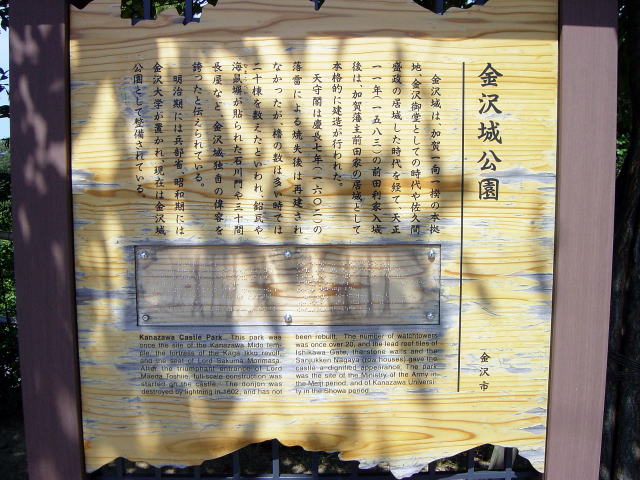 金沢城公園
金沢城は、加賀一向一揆の本拠
地、金沢御堂としての時代や佐久間
盛政の居城した時代を経て、天正
一一年(一五八三)の前田利家入城
後は、加賀藩主前田家の居城として
本格的に建造が行われた。
天守閣は慶長七年(一六〇二)の
落雷による焼失後は再建され
なかったが、櫓の数は多い時では
二十棟を数えたといわれ、鉛瓦や
海鼠塀が貼られた石川門や三十間
長屋など、金沢城独自の偉容を
誇ったと伝えられている。
明治期には兵部省、昭和期には
金沢大学が置かれ、現在は金沢城
公園として整備されている。
金沢市
Kanazawa Castle Park This park was
once the site of the Kanazawa Mido tem-
ple, the fortress of the Kaga Ikko revolt,
and the seat of Lord Sakuma Morimasa.
After the triumphant entrance of Lord
Maeda Toshiie, full-scale construction was
started on the castle. The donjon was
destroyed by lightning in 1602, and has not
been rebuilt. The number of watchtowers
was once over 20, and the lead roof tiles of
Ishikawa Gate, the stone walls and the
Sanjukken Nagaya (row houses) gave the
castle a dignified appearance. The park
was the site of the Ministry of the Army in
the Meiji period, and of Kanazawa Universi-
ty in the Showa period.